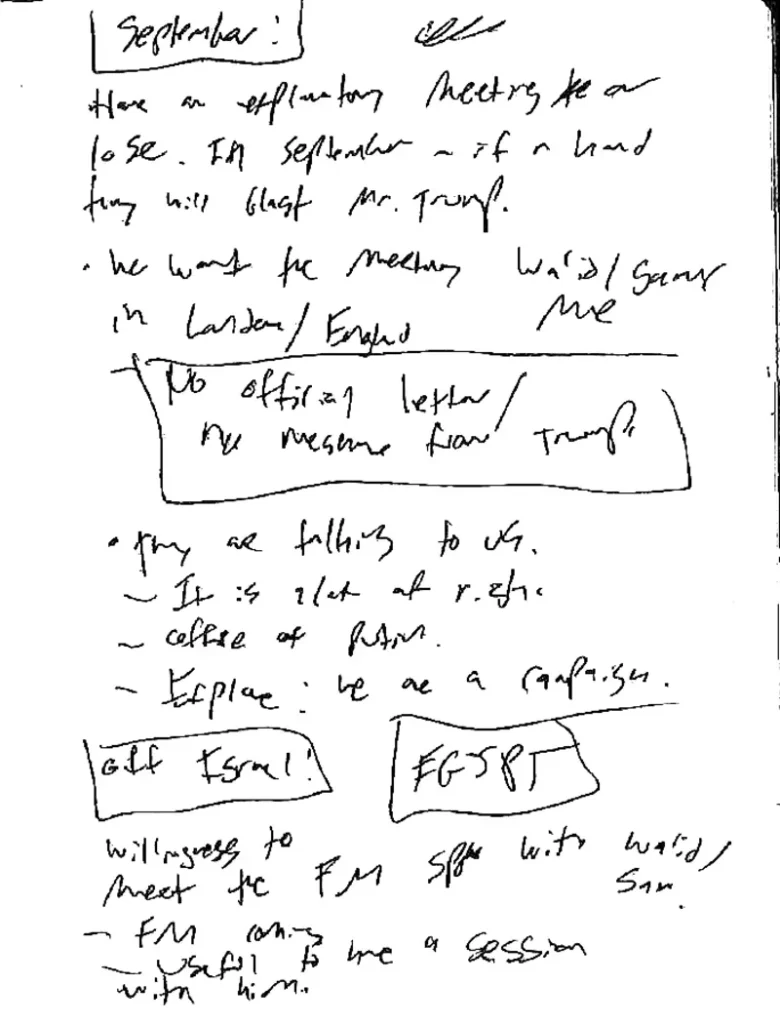 September:
Have an exploratory meeting to or
lose. In September – if a hand
they will blast Mr. Trump.
• we want the meeting Walid/Sam
in London/England me
No official letter/
no message from Trump.
• they are talking to us.
– It is a lot of
– office of Putin.
– Explore: we are a campaign.
off Israel! EGYPT
Willingness to
meet the FM with Walid/
Sam.
– FM coming
– useful to have a session
with him.